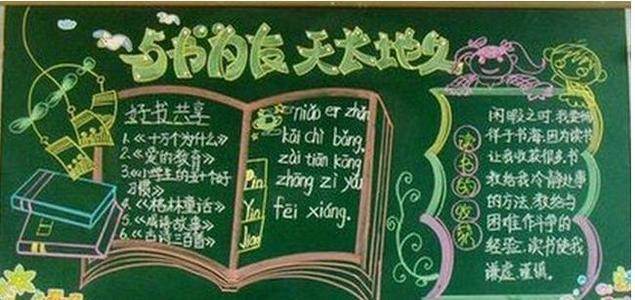 与书为友 天长地久
好书共享
1.《十万个为什么》
2.《爱的教育》
3.《小学生的五十个好
习惯》
4.《格林童话》
5.《成语故事》
6.《古诗三百首》
niǎo er zhǎn
kāi chì bǎng,
zài tiān kōng
zhōng zì yóu
fēi xiáng.
Pin
Yin
读书的收获
闲暇之时,我要徜
徉于书海,因为读书
让我收获很多,书
教给我冷静处事
的方法,教给与
困难作斗争的
经验,读书使我
谦虚、谨慎。